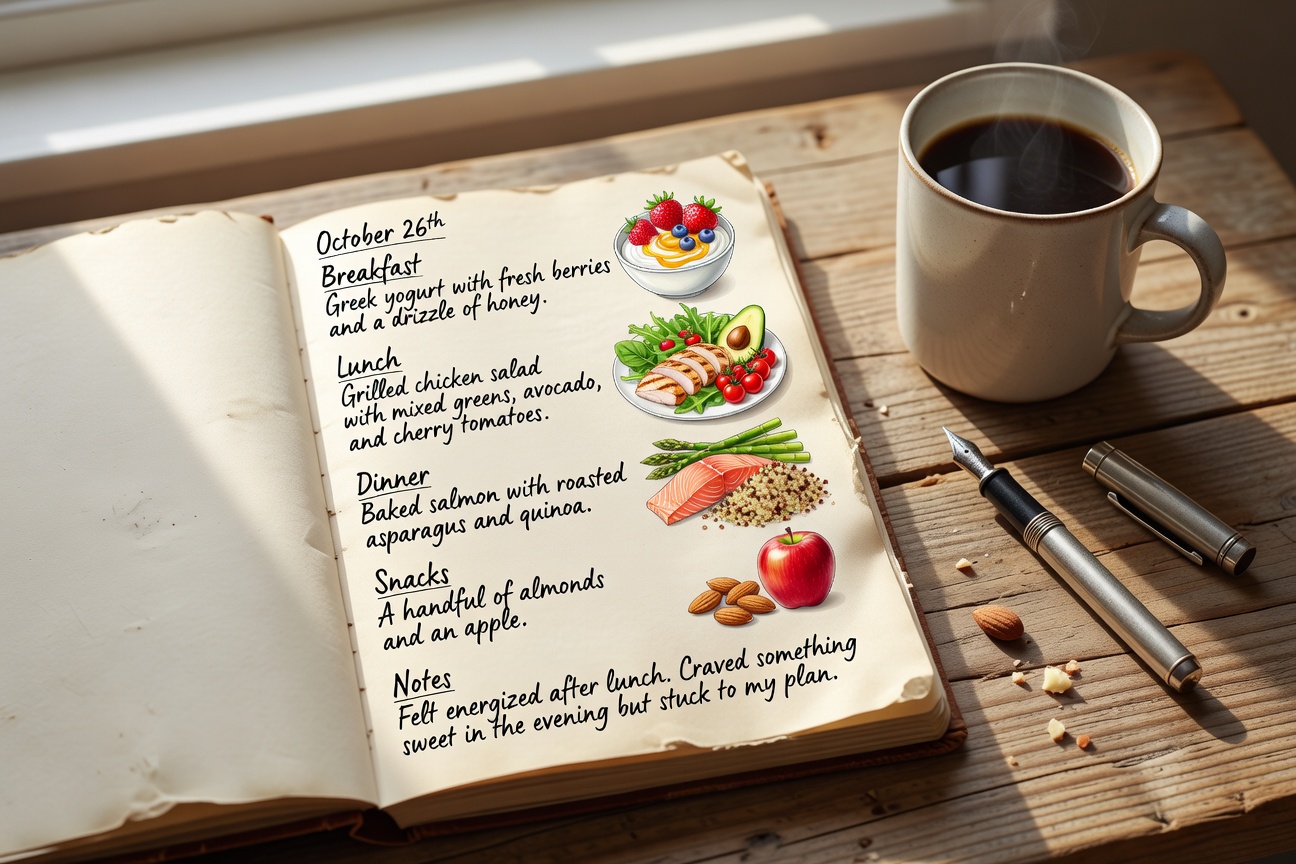 October 26th
Breakfast
Greek yogurt with fresh berries
and a drizzle of honey.
Lunch
Grilled chicken salad
with mixed greens, avocado,
and cherry tomatoes.
Dinner
Baked salmon with roasted
asparagus and quinoa.
Snacks
A handful of almonds
and an apple.
Notes
Felt energized after lunch. Craved something
sweet in the evening but stuck to my plan.